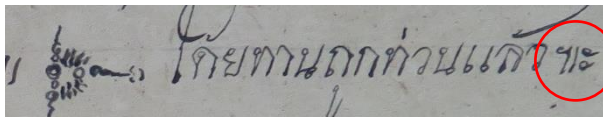 โดยทานถูกท่วนแล้วฯะ